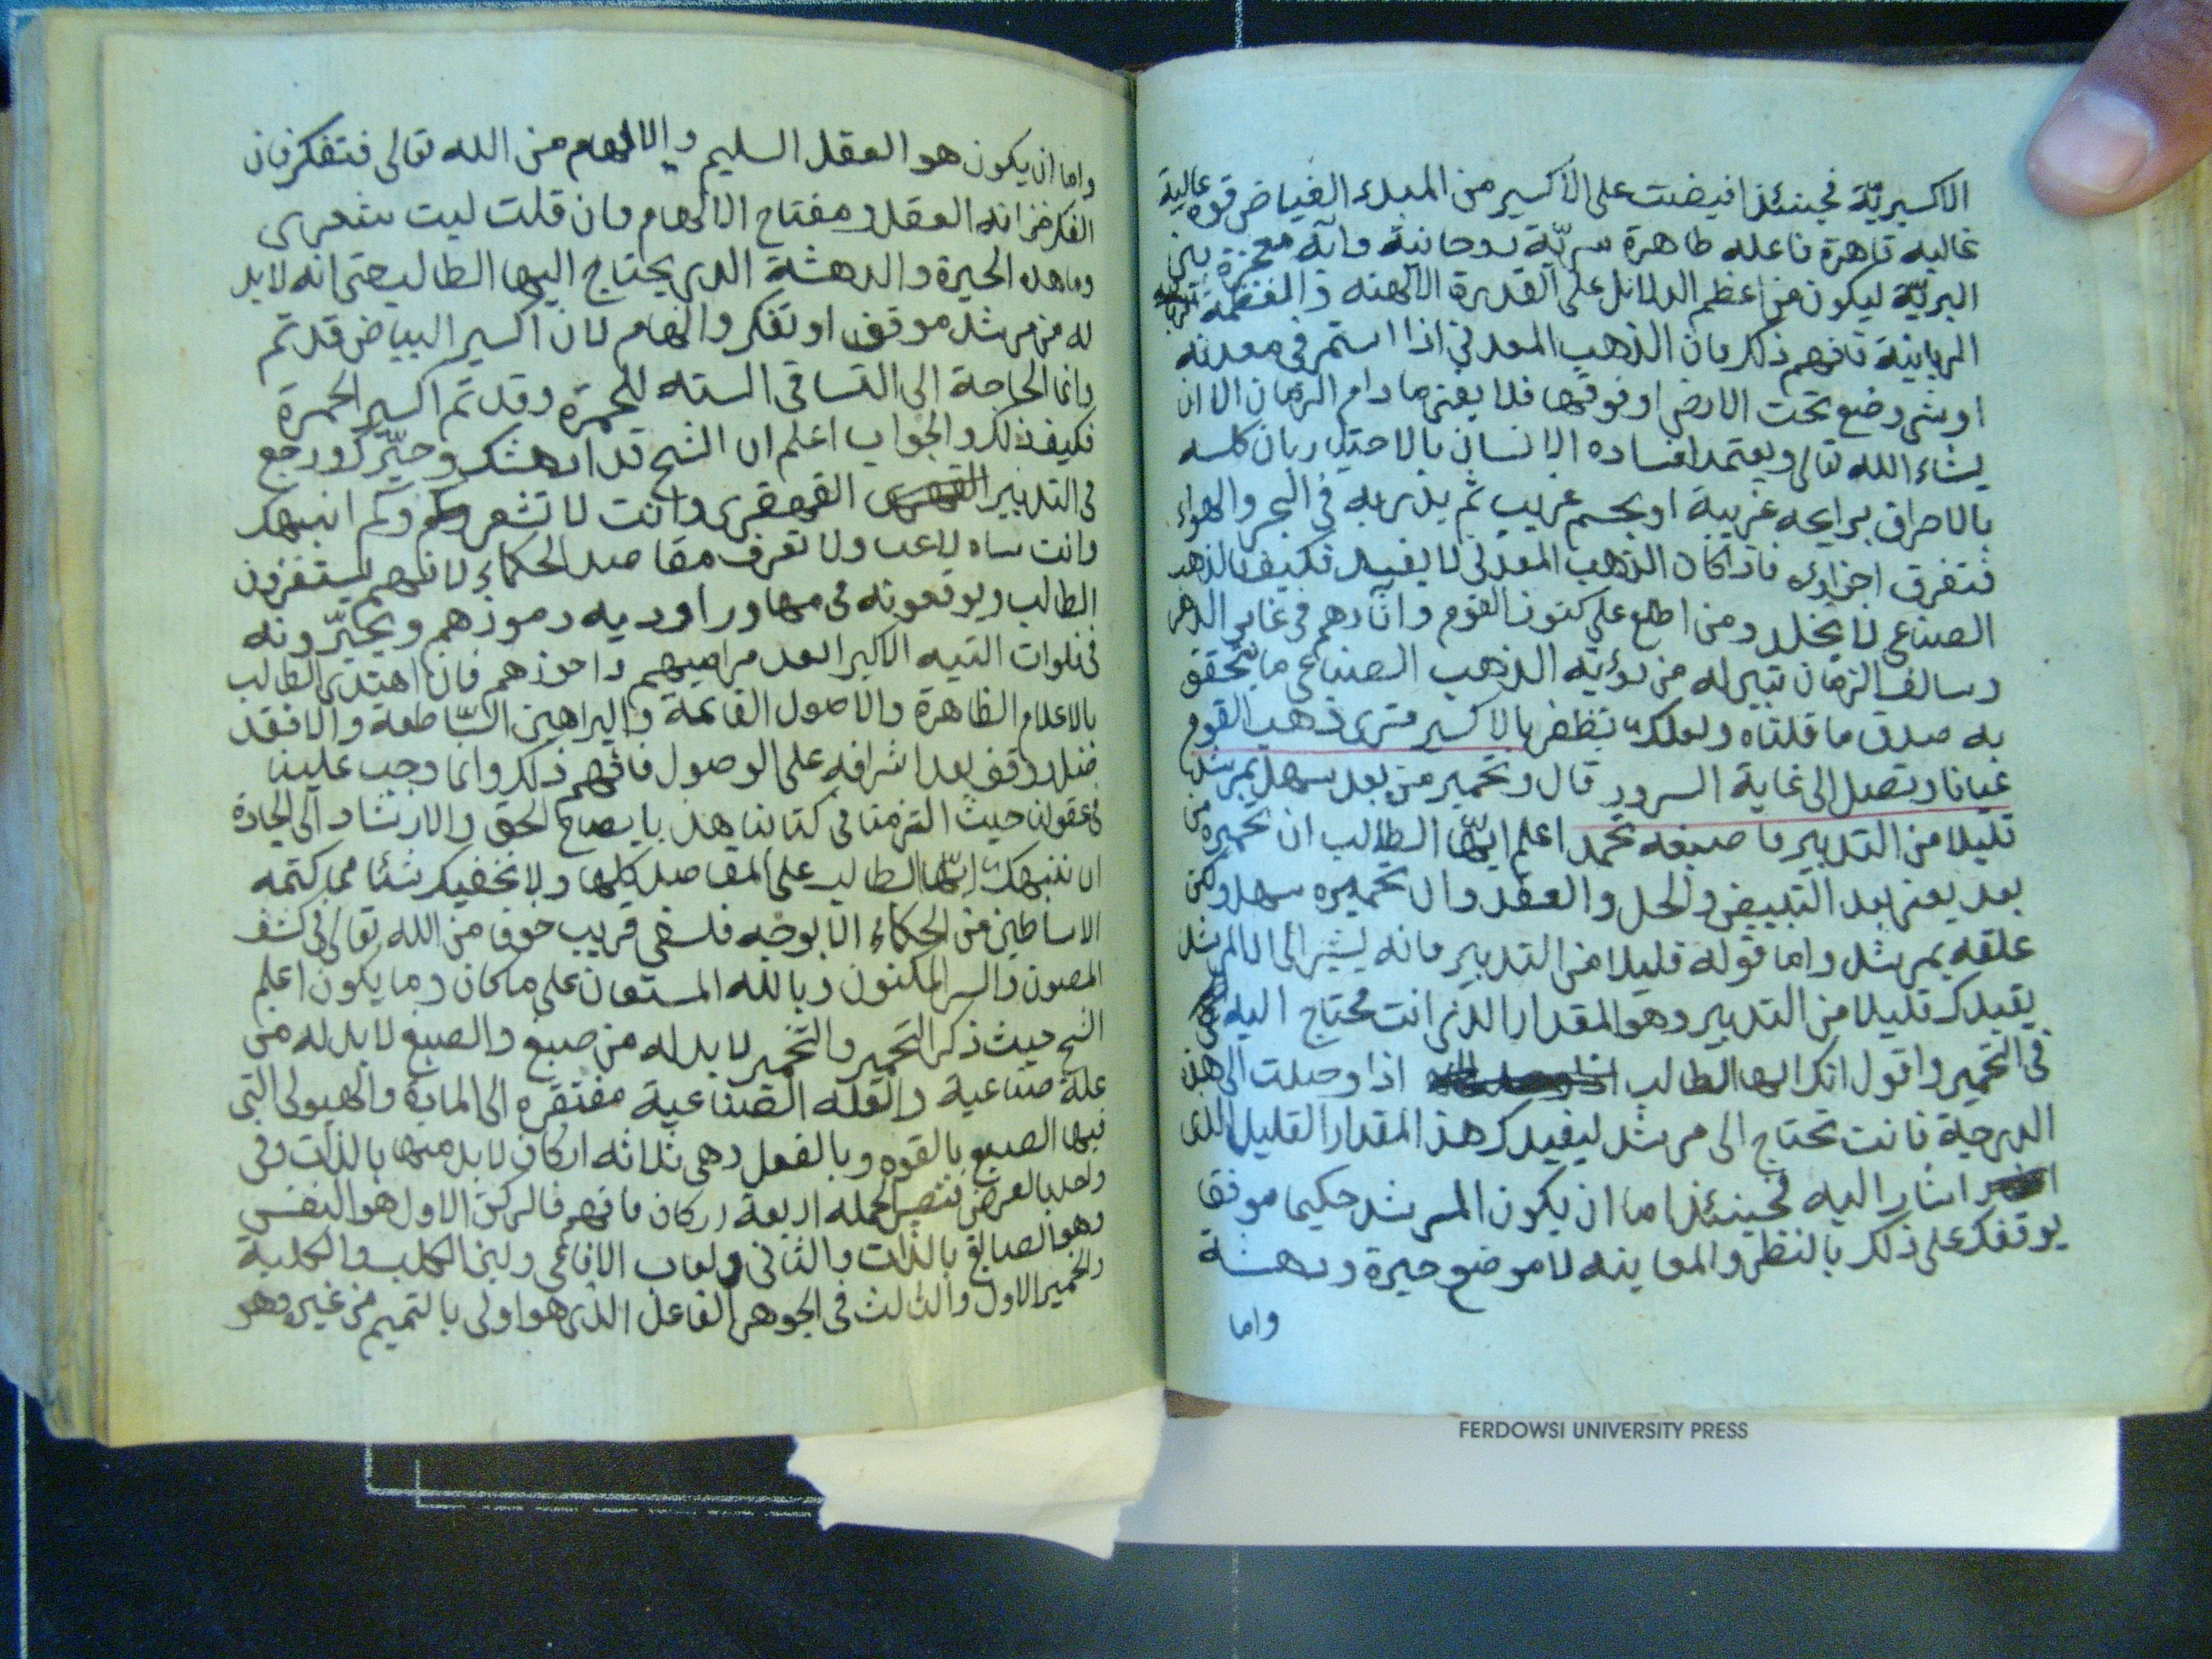 الاكسيريّة فحينئذ افيضت على الاكسير من المبدء الفياض قوة عالية
غاليه قاهرة فاعله طاهرة سريّة روحانية وآية معجزة بين
البريّة ليكون من اعظم الدلائل على القدرة الالهية والمعظمة
الربانية فافهم ذلك فان الذهب المعدني اذا استمر في معدنه
او شئ وضع تحت الارض او فوقها فلا يفنى ما دام الزمان الا ان
يشاء الله تعالى ويعتمد افساده الانسان بالاحتيال بان كلسه
بالاحراق برايحه غريبة او بجسم غريب ثم يذريه في البحر والهواء
فتفرق اجزاوه فاذا كان الذهب المعدني لا يفسد فكيف بالذهب
الصناعي لا يخلد ومن اطلع على كنوز القوم واثارهم في غابر الدهر
وسالف الزمان تبين له من رؤية الذهب الصناعي ما يتحقق
به صدق ما قلناه ولعلك تظفر بالاكسير فترى ذهب القوم
عيانا وتصل الى غاية السرور قال وتخمير من بعد سهل بمرشد
قليلا من التدبير فاصبغه تحمد اعلم ايها الطالب ان تخميره من
بعد يعني بعد التبييض والحل والعقد وان تخميره سهل ولكن
علقه بمرشد واما قوله قليلا من التدبير فانه يشير الى ان المرشد
يفيدك قليلا من التدبير وهو المقدار الذي انت محتاج اليه
في التخمير واقول انك ايها الطالب اذا وصلت الى هذه
الدرجة فانت تحتاج الى مرشد ليفيدك هذا المقدار القليل الذي
اشار اليه فحينئذ اما ان يكون المرشد حكيما موفقا
يوقفك على ذلك بالنظر والمعاينه لا موضع حيرة ودهشة
واما
واما ان يكون هو العقل السليم والالهام من الله تعالى فتفكر فان
الفكر خزانه العقل ومفتاح الالهام فان قلت ليت شعرى
وما هذه الحيرة والدهشة الذي يحتاج اليها الطالب حتى انه لا بد
له من مرشد موقف او تفكر والهام لان اكسير البياض قد تم
وانما الحاجة الى التساقى السته للحمرة وقد تم اكسير الحمرة
فكيف ذلك والجواب اعلم ان الشيخ قد ادهشك وحيّرك ورجع
في التدبير القهقرى وانت لا تشعر وكم انبهك
وانت ساه لاعب ولا تعرف مقاصد الحكماء لانهم يستفزون
الطالب ويوقعونه في مهاور اودية رموزهم ويحيّرونه
في فلوات التيه الاكبر ابعد مراميهم واحوزهم فان اهتدى الطالب
بالاعلام الظاهرة والاصول القائمة والبراهين السّاطعة والا فقد
ضل ووقف بعد اشرافه على الوصول فافهم ذلك وانما وجب علينا
في عقولنا حيث التزمنا في كتابنا هذا بايضاح الحق والارشاد الى الجادة
ان ننبهك ايّها الطالب على المقاصد كلها ولا نخفيك شئا مما كتمه
الاساطين من الحكماء الا بوجه فلسفي قريب خوفا من الله تعالى في كشف
المصون والسر المكنون وبالله المستعان على ما كان وما يكون اعلم
الشيخ حيث ذكر التخمير والتخمير لا بد له من صبغ والصبغ لا بد له من
علة صناعية والعله الصناعية مفتقره الى المادة والهيولى التي
فيها الصبغ بالقوه وبالفعل وهي ثلاثه اركان لا بد منها بالذات وفي
واحد بالعرض فتصير الجمله اربعة اركان فافهم فالركن الاول هو النفس
وهو الصابغ بالذات والثاني ولعاب الافاعي ولبن الكلب والكلبة
والخمير الاول والثالث في الجوهر الفاعل الذي هو اولى بالتتميم من غيره وهو
FERDOWSI UNIVERSITY PRESS